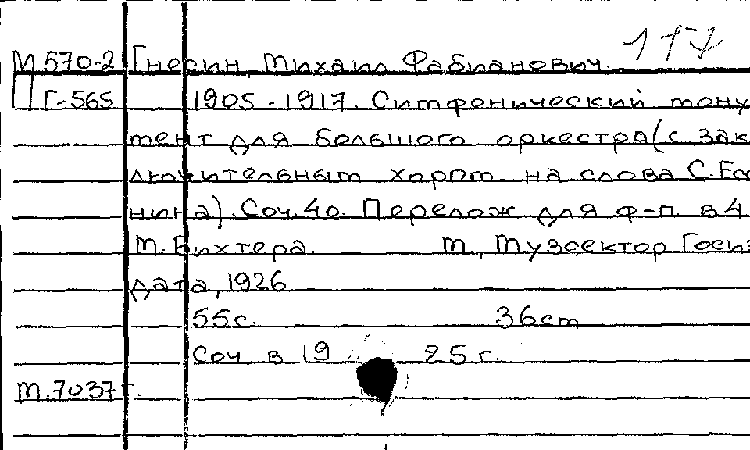 117
М.570-2 Гнесин, Михаил Фабианович.
Г-565 1905-1917. Симфонический мону
мент для большого оркестра (с зак
лючительным хором на слова С. Есе
нина). Соч. 40. Перелож для ф-п. в 4
М. Бихтера. М., Музсектор Госиз
дата, 1926
55с. 36см
Соч в 19 25 г.
М.7037г.